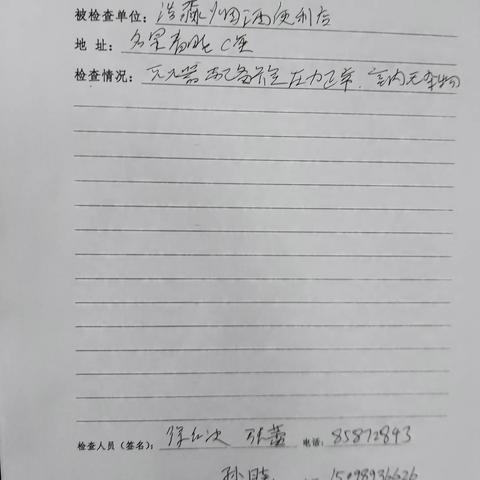 被检查单位：浩淼烟酒便利店
地 址：名星高 C座
检查情况：灭火器配备齐全压力正常，室内无杂物
检查人员（签名）： 电话：85872893
孙晓 15098936626